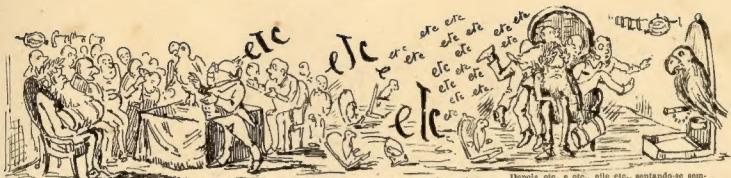 etc
etc
etc etc
etc etc etc etc
etc etc etc etc
etc etc
e etc etc
etc etc
etc etc
etc etc
Depois etc. e etc., elle etc., sentando-se sem-